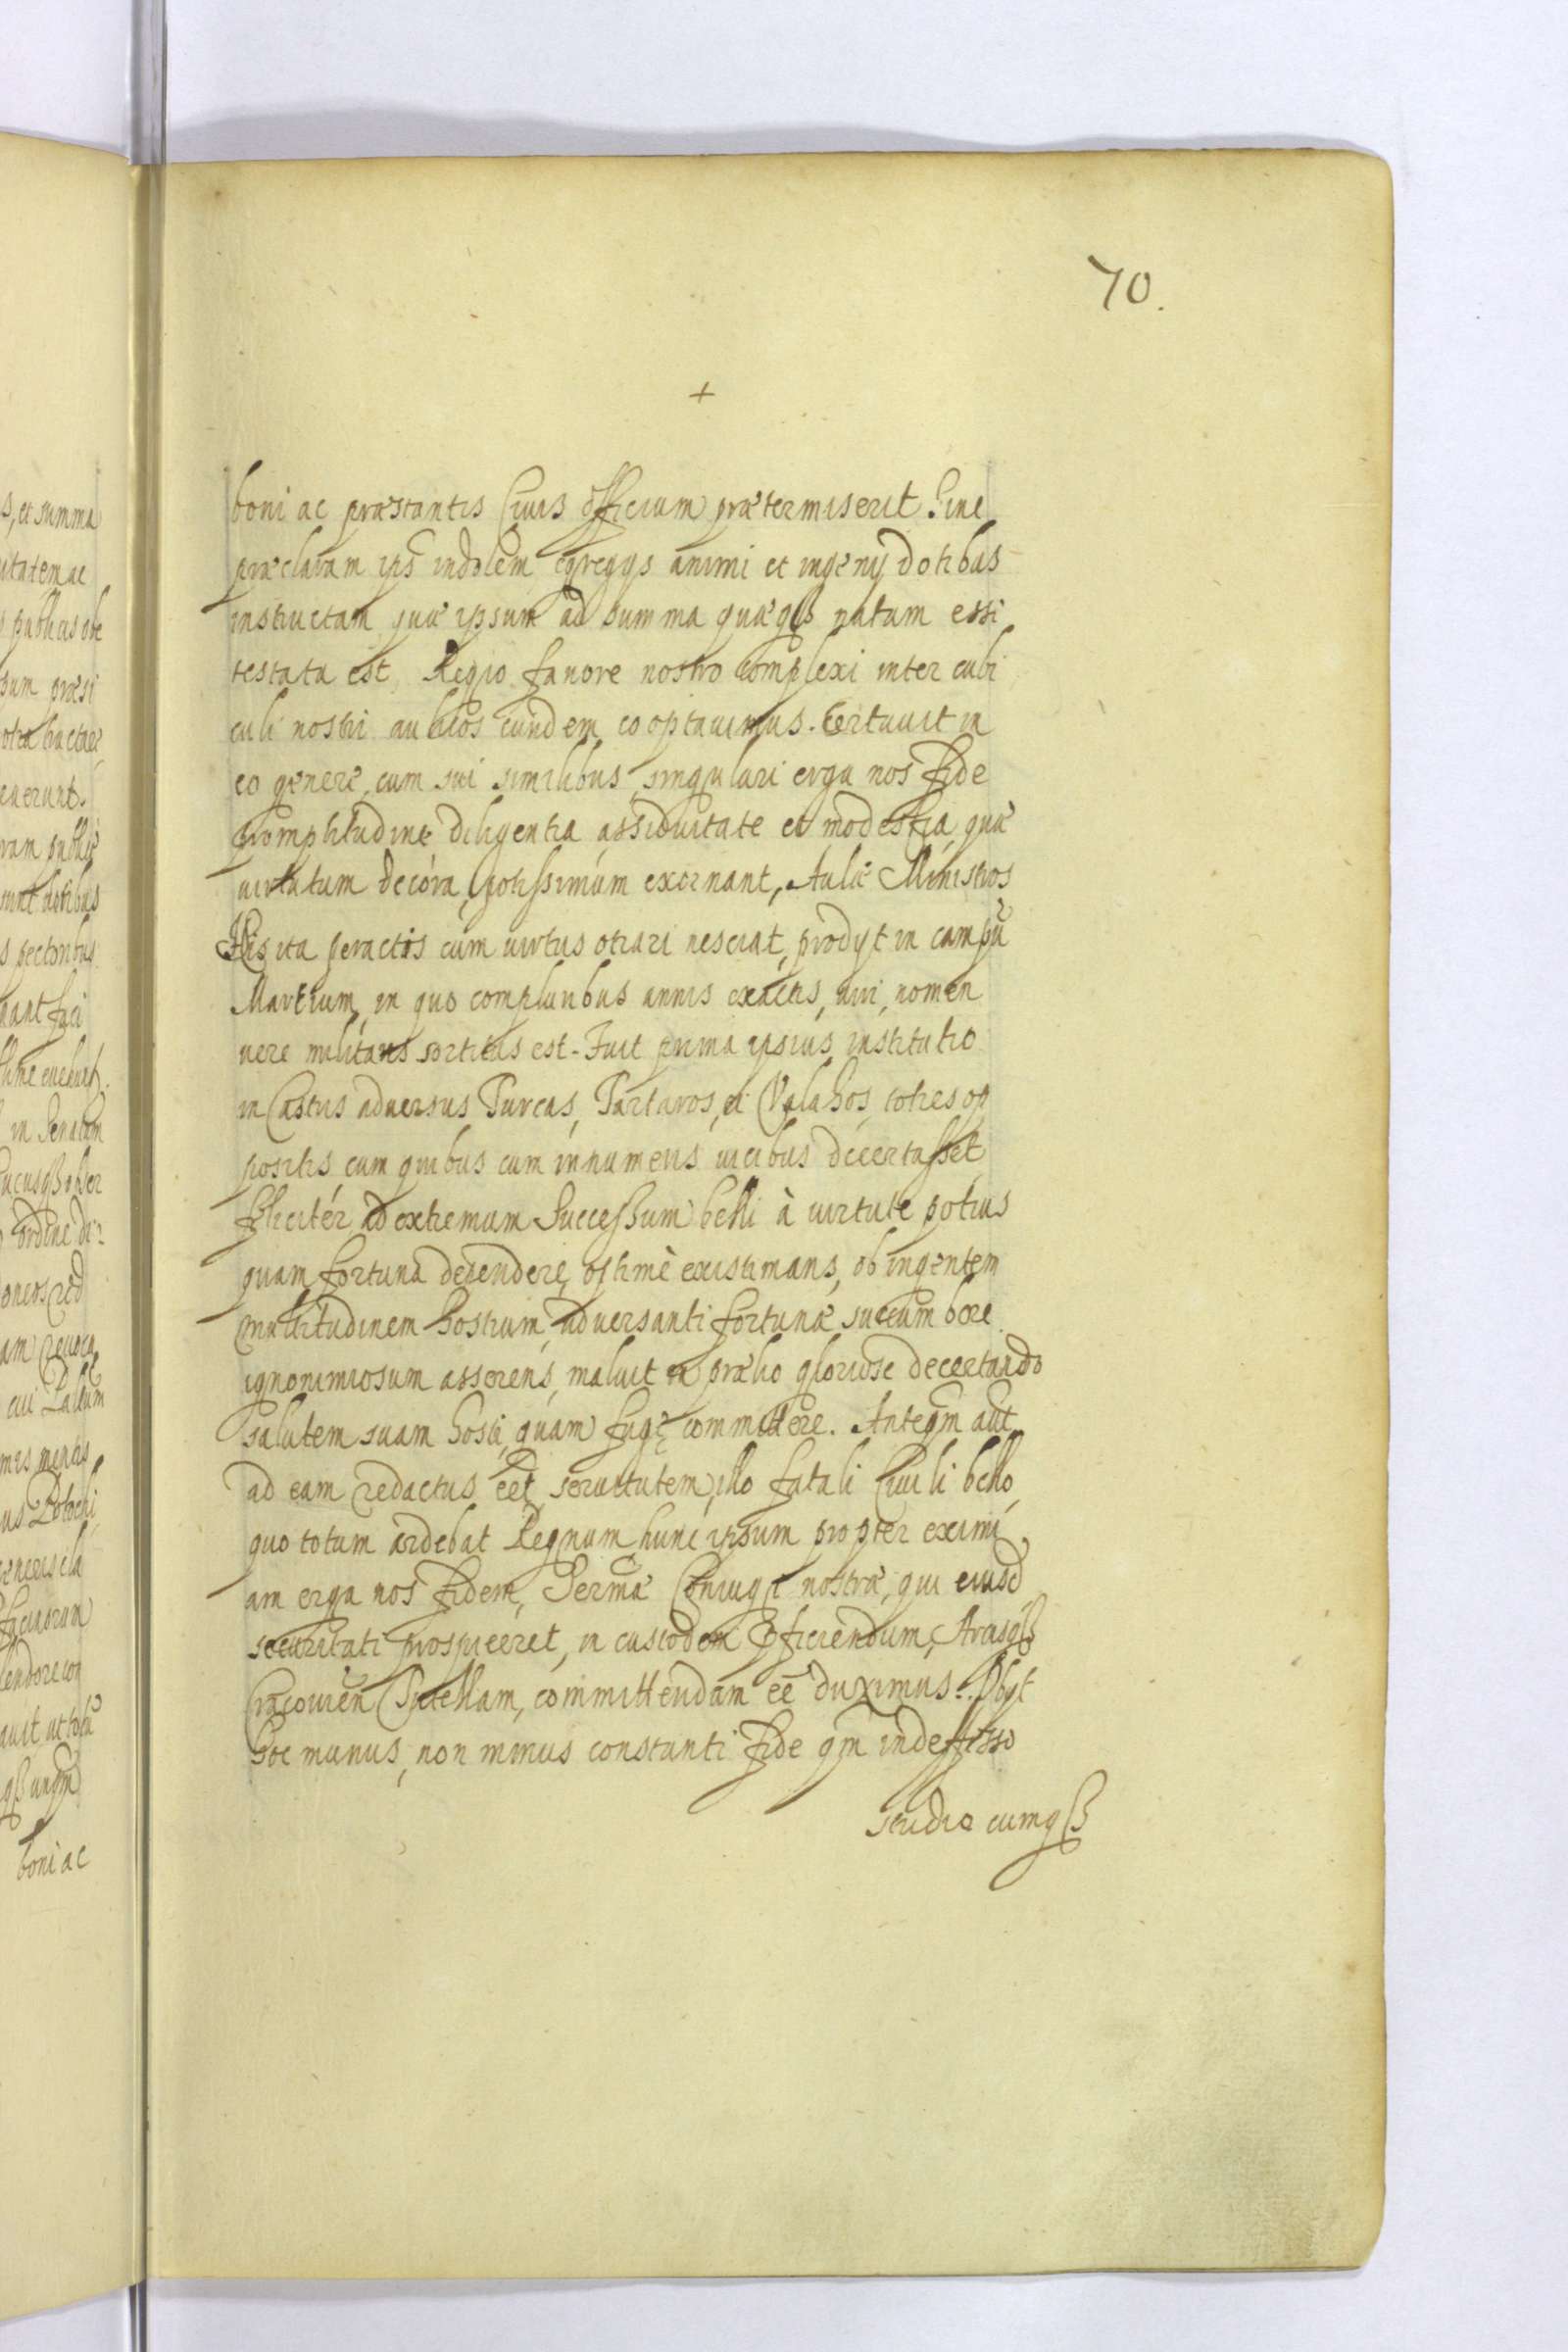 70.
+
boni ac præstantis Ciuis officium prætermiserit. Hinc
præclaram ips indolem egregijs animi et ingenij dotibus
instructam, quæ ipsum ad summa quæqß natum esse
testata est, Regio fauore nostro complexi inter cubi
culi nostri aulicos eundem cooptauimus. Certauit in
eo genere, cum sui similibus, singulari erga nos fide
promptitudine diligentia, assiduitate et modestia, quæ
uirtutum decora, potissimùm exornant, Aulæ Ministros
His ita peractis cum uirtus otiari nesciat, prodijt in campũ
Martium, in quo compluribus annis exactis, uiri, nomen
uere militaris sortitus est. Fuit prima ipsius institutio
in Castris aduersus Turcas, Tartaros, et Valahos, toties op
positis, cum quibus cum innumeris uicibus decertasset
felicitér ad extremum Successum belli à uirtute potius
quam fortuna dependere, optimè existimans, ob ingentem
multitudinem hostium, aduersanti fortunæ succumbere
ignonimiosum asserens, maluit in prælio gloriose decertando
salutem suam hosti, quam fugę committere. Anteqm aũt
ad eam redactus eẽt, seruitutem, illo fatali Ciuili bello,
quo totum ardebat Regnum hunc ipsum propter eximi
am erga nos fidem, Sermæ Coniugi nostræ, qui eiusd
securitati prospiceret, in custodem Pficiendum, Arcisqß
Cracouien̄ Tutellam, committendam eē duximus. Obijt
hoc munus, non minus constanti fide qm̃ indefesso
studio cumqß